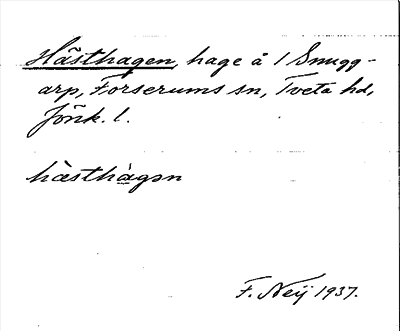 Hästhagen, hage å 1 Smugg-
arp, Forserums sn, Tveta hd,
Jönk. l.
hàsthàgən
F. Neij 1937.